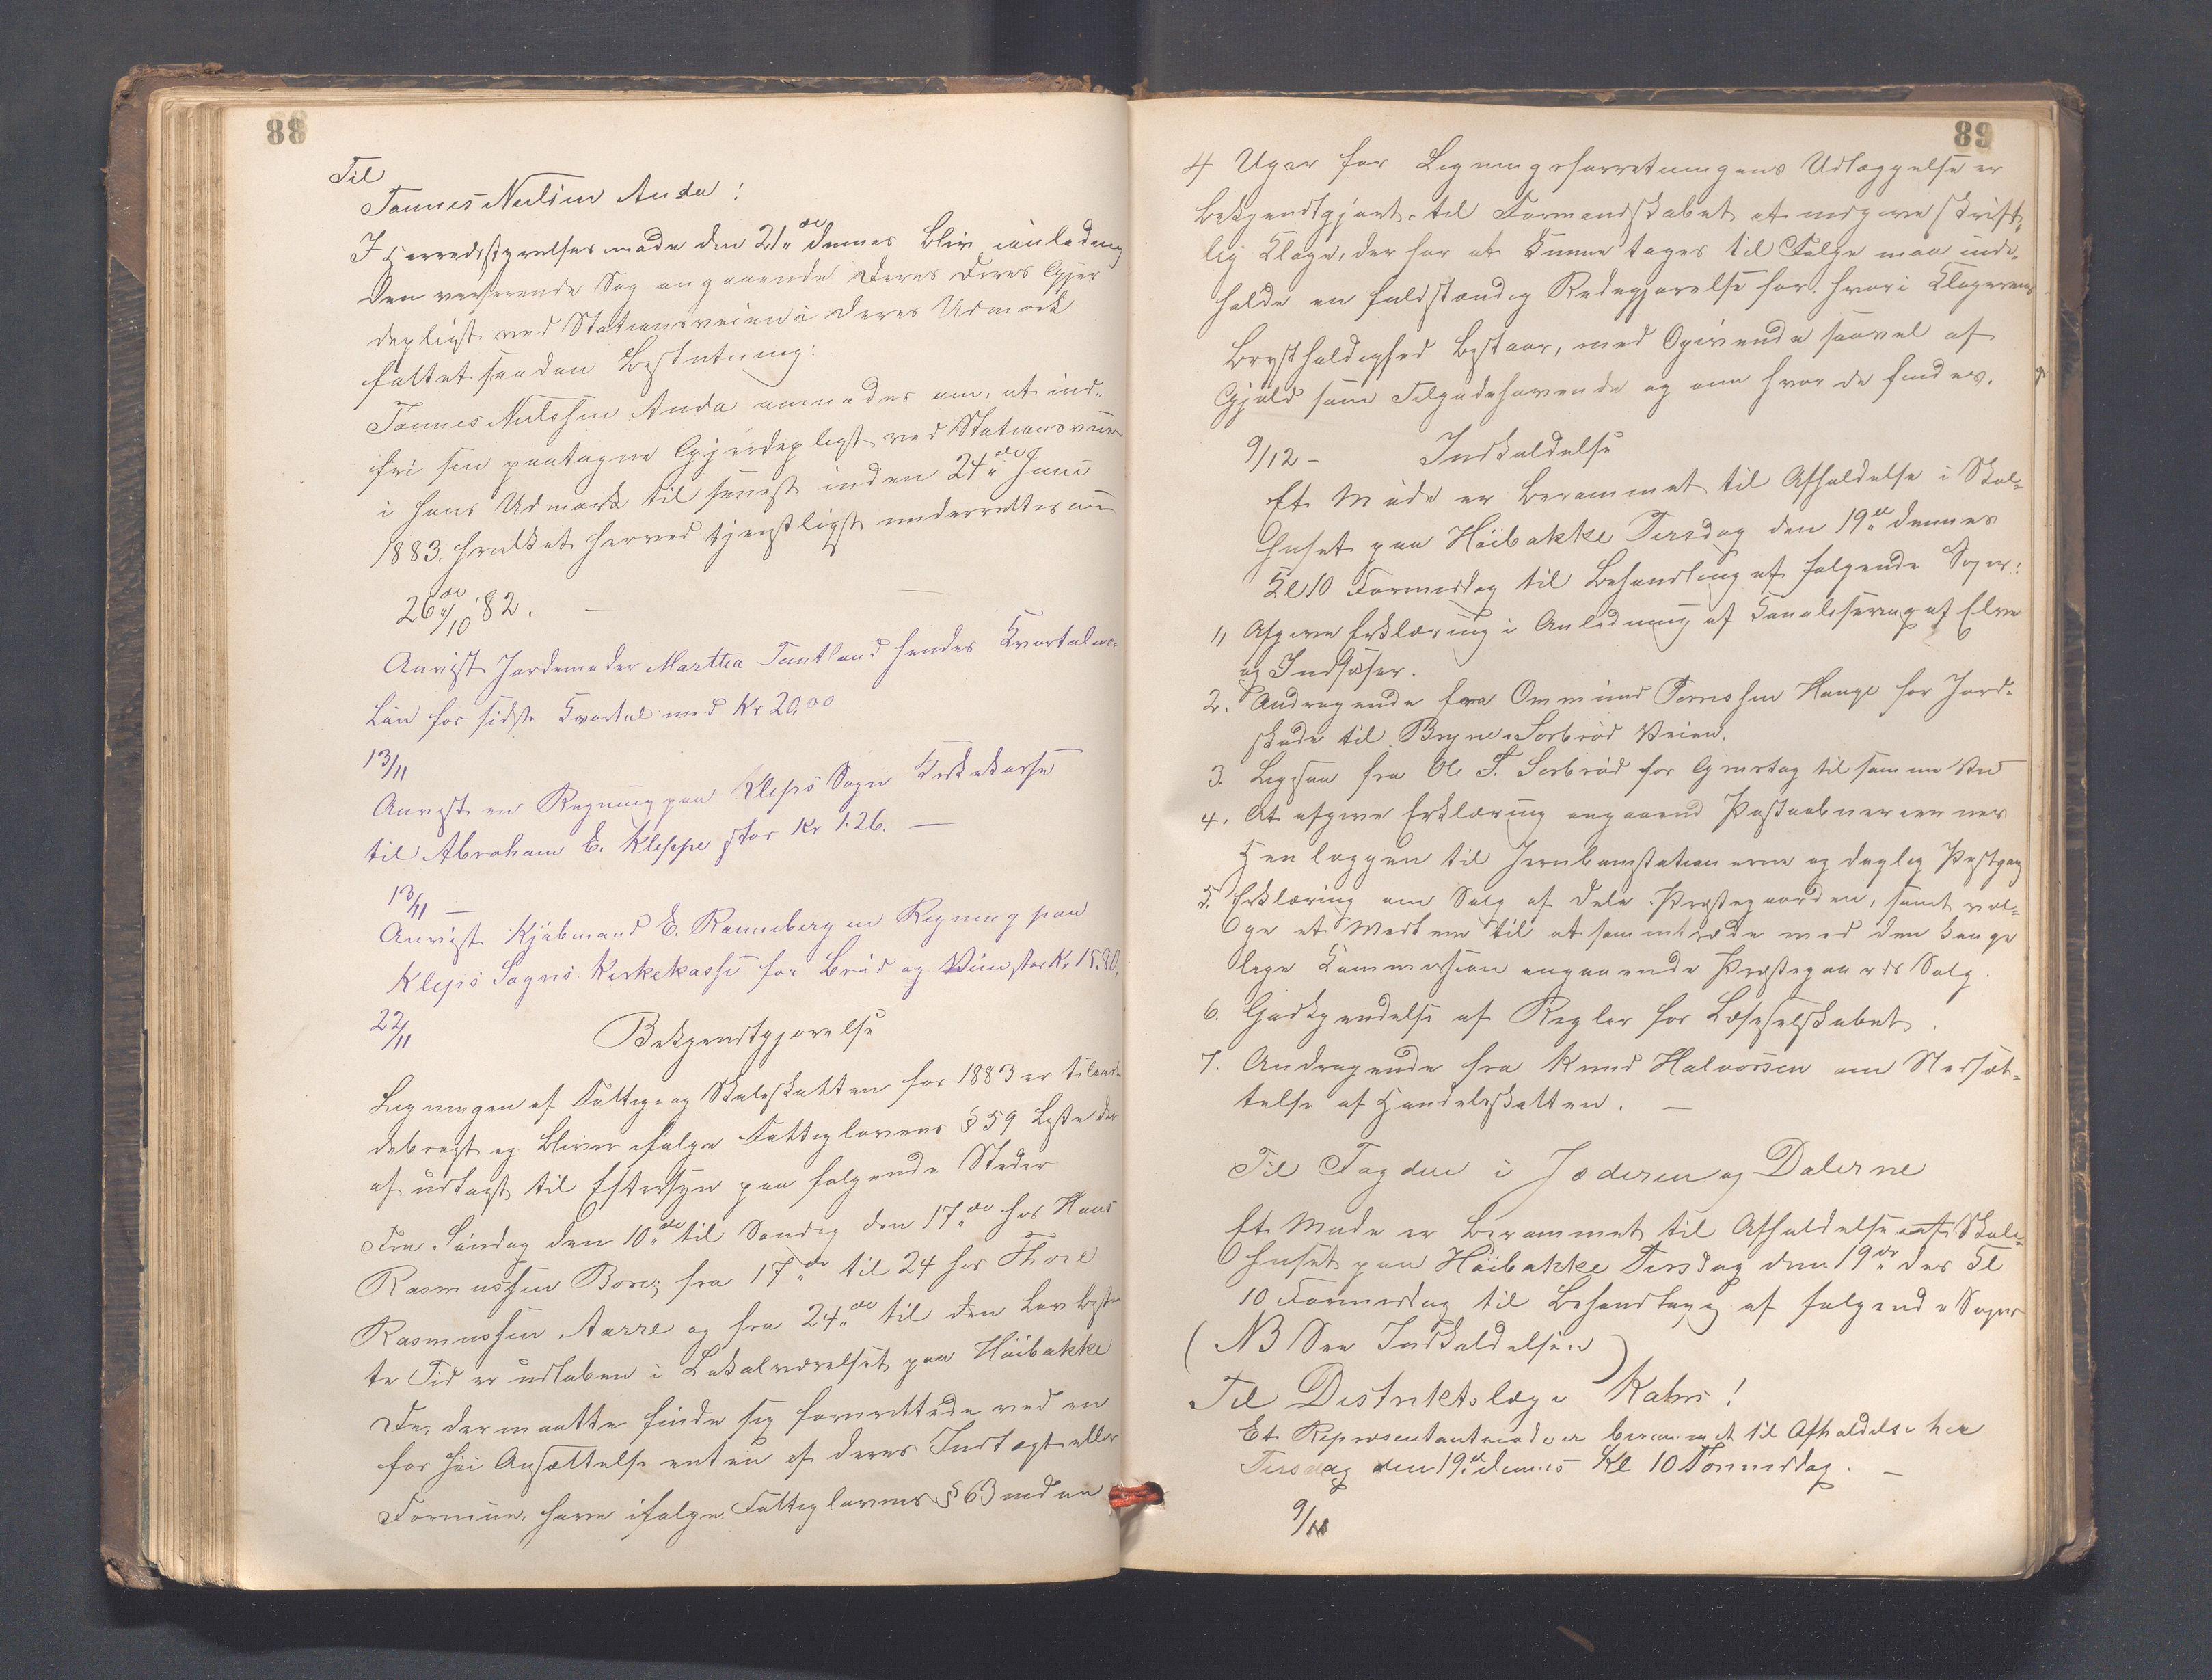 88
Til
Tønnes Nielsen Anda!
I Herredsstyrelsesmøde den 21de dennes blev i anledning
den verserende Sag angaaende Deres Deres Gjer
depligt ved Stationsveien i Deres Udmark
fattet saadan Beslutning:
Tønnes Nielssen Anda anmodes om, at ind-
fri sin paatagne Gjerdepligt ved Stationsveien
i hans Udmark til senest inden 24de Juni
1883. hvilket herved tjenstligst underrettes om
26de/10 82. —
Anvist Jordemoder Marthea Tantland hendes Kvartalse-
Løn for sidste Kvartal med Kr 20,00
13/11
Anvist en Regning paa Kleps Sogns Kirkekasse
til Abraham E. Kleppe stor Kr 1.26. —
13/11 —
Anvist Kjøbmand E. Ranneberg en Regning paa
Kleps Sogns Kirkekasse for Brød og Vin stor Kr 15.80.
22/11 Bekjendtgjørelse
Ligningen af Fattig- og Skoleskatten for 1883 er tilende
debragt og bliver ifølge Fattiglovens § 59 Liste der
af udlagt til Eftersyn paa følgende Steder
Fra Søndag den 10de til Søndag den 17de hos Hans
Rasmussen Bore; fra 17de til 24 hos Thore
Rasmussen Aarre og fra 24de til den Lovbestem
te Tid er udløben i Lokalværelset paa Høibakke
De, der maatte finde sig forurettede ved en
for høi Ansættelse enten af deres Indtægt eller
Formue, have ifølge Fattiglovens § 63 inden
89
4 Uger før Ligningsforretningens Udlæggelse er
bekjendtgjort, til Formandskabet at indgive skrift-
lig Klage, der for at kunne tages til Følge maa inde-
holde en fuldstændig Redegjørelse for, hvori Klagerens
Brøstholdighed bestaar, med Opgivende saavel af
Gjæld som Tilgodehavende og om hvor de findes.
9/12 — Indkaldelse
Et Møde er berammet til Afholdelse i Skol-
huset paa Høibakke Tirsdag den 19de dennes
Kl 10 Formiddag til Behandling af følgende Sager:
1, Afgive Erklæring i Anledning af Kanalisering af Elve
og Indsøer.
2. Andragende fra Ommund Tønnessen Hauge for Jord-
skade til Bryne-Serbrød Veien.
3. Ligesaa fra Ole T. Serbrød for Grustag til samme Vei
4. At afgive Erklæring angaaend Postaabnerierners
Henlæggen til Jernbanstationerne og daglig Postgang
5. Erklæring om Salg af Dele Præstegaarden, samt væl-
ge et Medlem til at sammentræde med den konge
lige Kommission angaaende Præstegaards Salg.
6. Godkjendelse af Regler for Læseselskabet.
7. Andragende fra Knud Halvorsen om Nedsæt-
telse af Handelsskatten. —
Til Fogden i Jæderen og Dalerne
Et Møde er berammet til Afholdelse i Skole-
huset paa Høibakke Tirsdag den 19de ds Kl
10 Formiddag til Behandling af følgende Sager
( NB See Indkaldelsen )
Til Distriktslæge Kahrs!
Et Representantmøde er berammet til Afholdelse her
Tirsdag den 19de dennes Kl 10 Formiddag. —